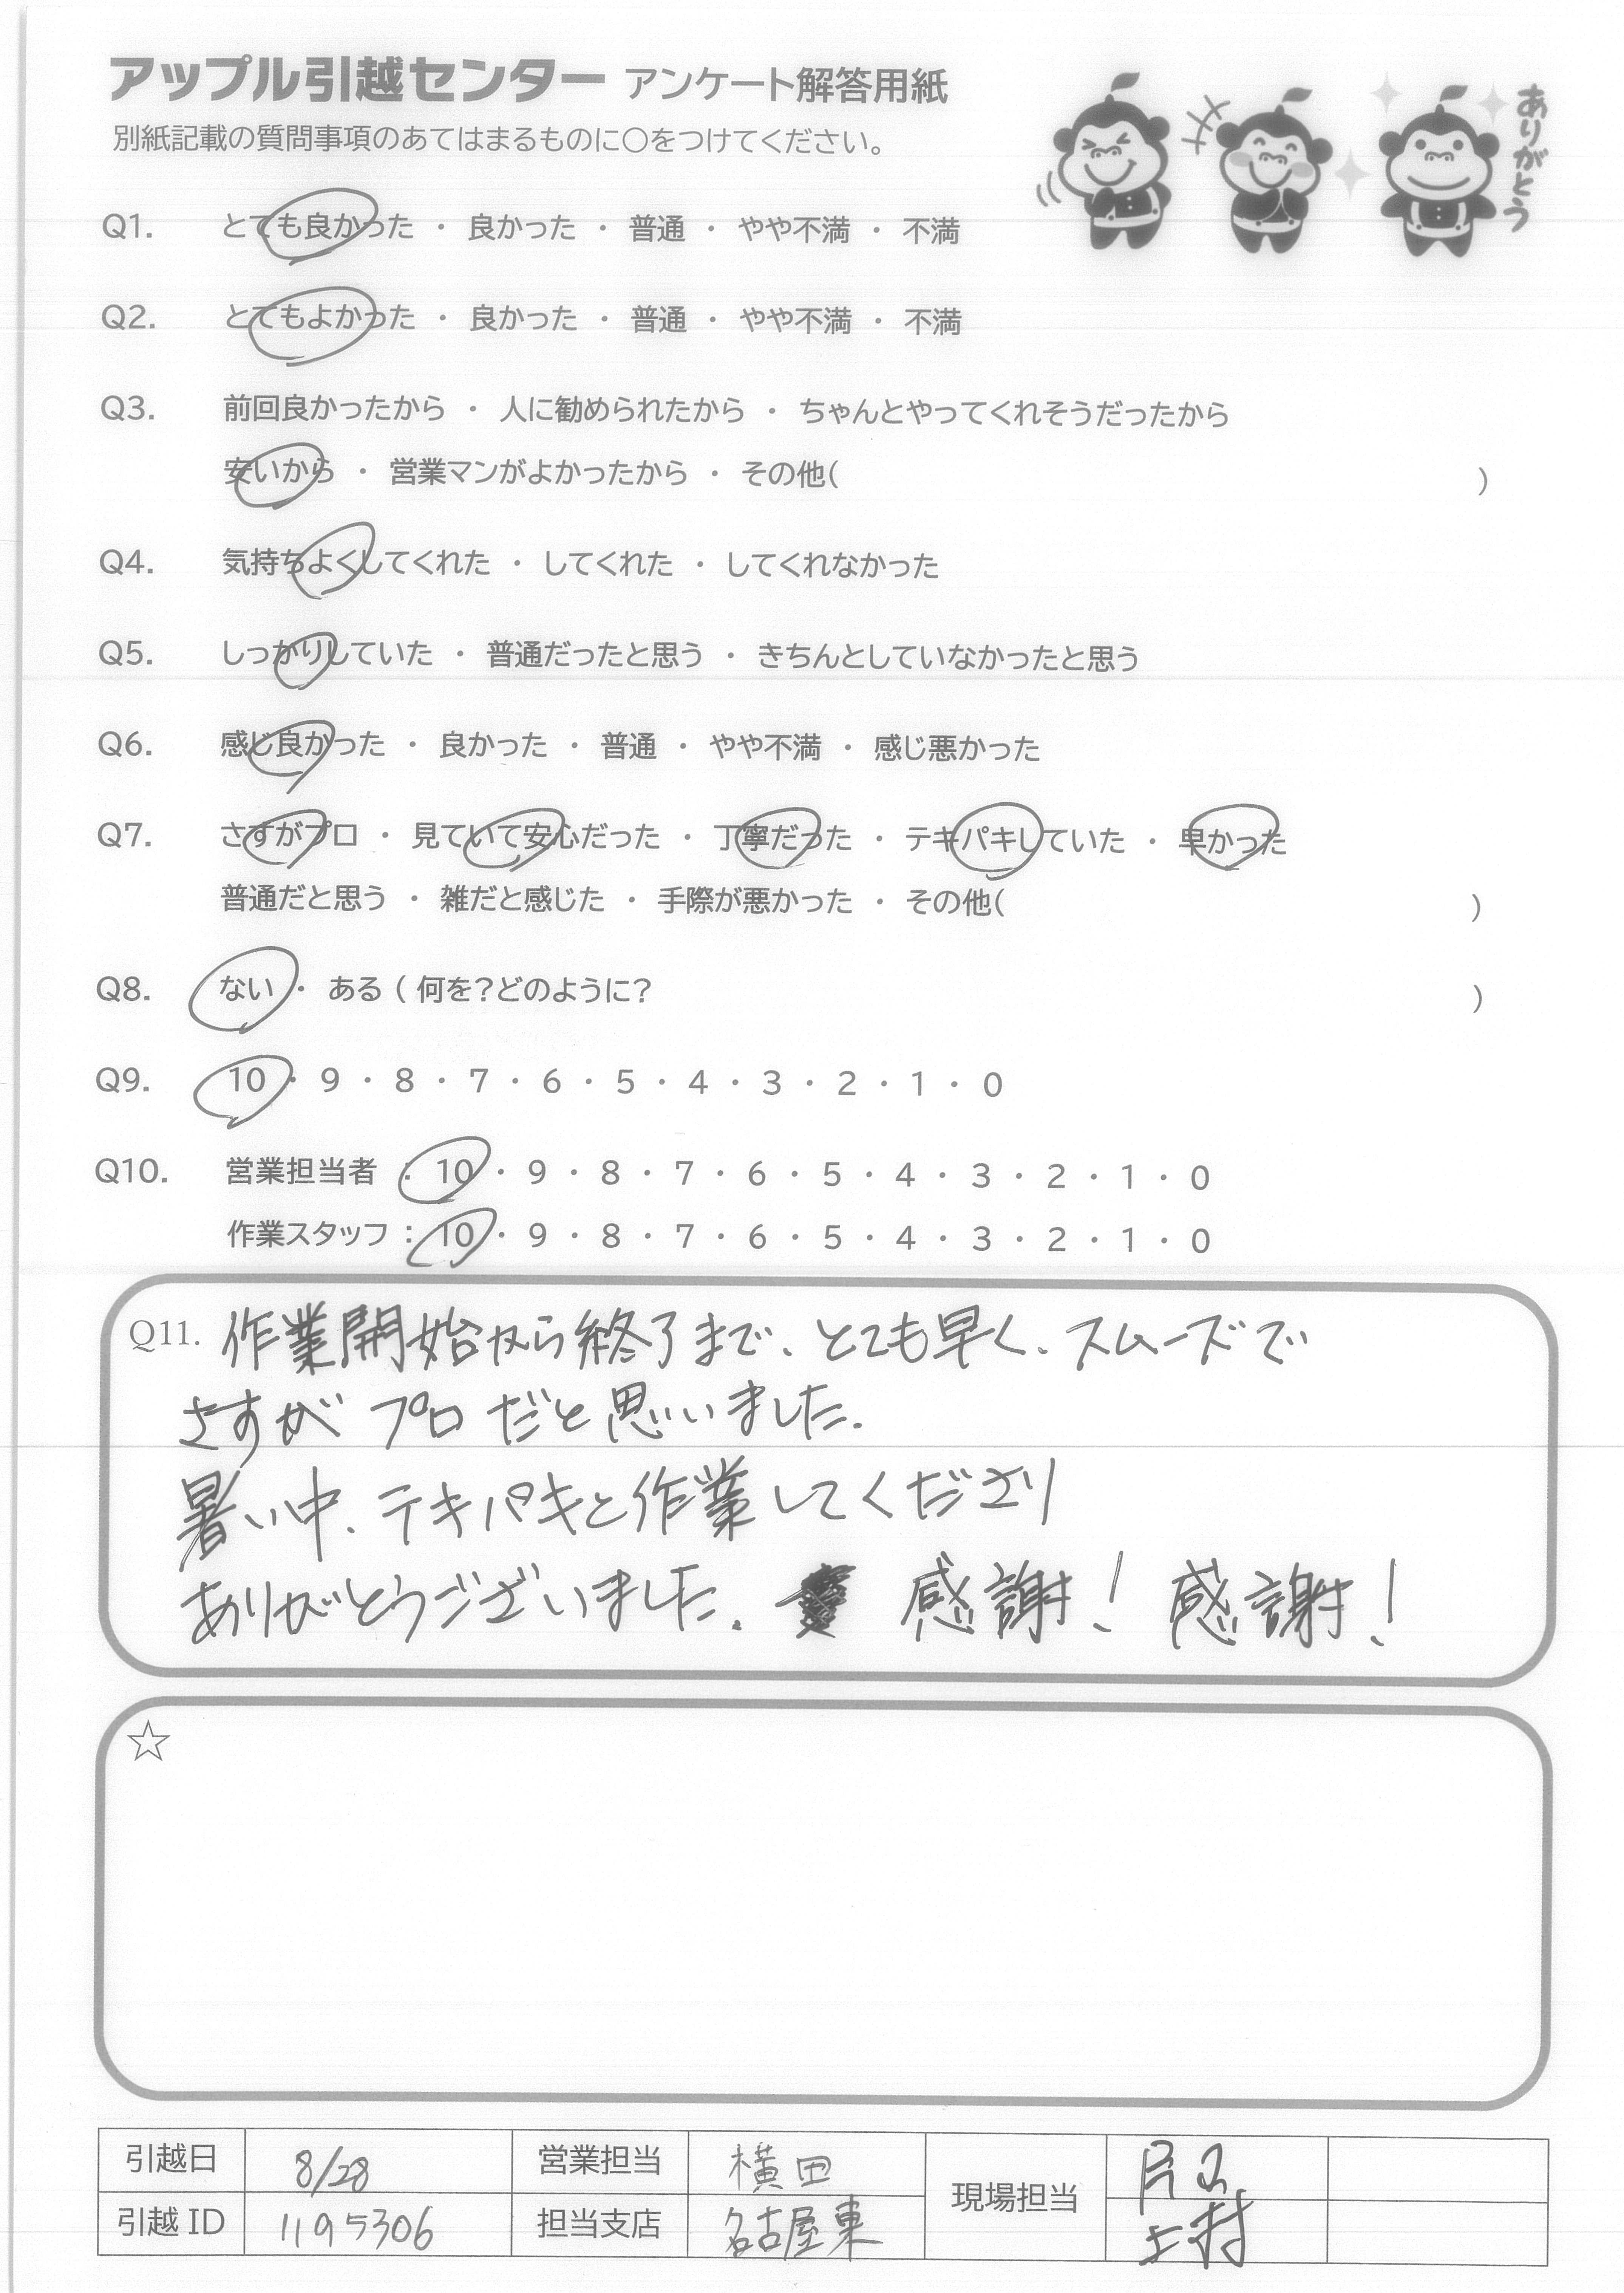 アップル引越センター アンケート解答用紙
別紙記載の質問事項のあてはまるものに〇をつけてください。
ありがとう
Q1. とても良かった ・ 良かった ・ 普通 ・ やや不満 ・ 不満
Q2. とてもよかった ・ 良かった ・ 普通 ・ やや不満 ・ 不満
Q3. 前回良かったから ・ 人に勧められたから ・ ちゃんとやってくれそうだったから
安いから ・ 営業マンがよかったから ・ その他( )
Q4. 気持ちよくしてくれた ・ してくれた ・ してくれなかった
Q5. しっかりしていた ・ 普通だったと思う ・ きちんとしていなかったと思う
Q6. 感じ良かった ・ 良かった ・ 普通 ・ やや不満 ・ 感じ悪かった
Q7. さすがプロ ・ 見ていて安心だった ・ 丁寧だった ・ テキパキしていた ・ 早かった
普通だと思う ・ 雑だと感じた ・ 手際が悪かった ・ その他( )
Q8. ない ・ ある ( 何を?どのように? )
Q9. 10 ・ 9 ・ 8 ・ 7 ・ 6 ・ 5 ・ 4 ・ 3 ・ 2 ・ 1 ・ 0
Q10. 営業担当者 : 10 ・ 9 ・ 8 ・ 7 ・ 6 ・ 5 ・ 4 ・ 3 ・ 2 ・ 1 ・ 0
作業スタッフ : 10 ・ 9 ・ 8 ・ 7 ・ 6 ・ 5 ・ 4 ・ 3 ・ 2 ・ 1 ・ 0
Q11. 作業開始から終了まで、とても早く、スムーズで
さすが プロ だと思いました。
暑い中、テキパキと作業してくださり
ありがとうございました。 感謝! 感謝!
☆
引越日 8/28 営業担当 横田 現場担当
引越 ID 1195306 担当支店 名古屋東